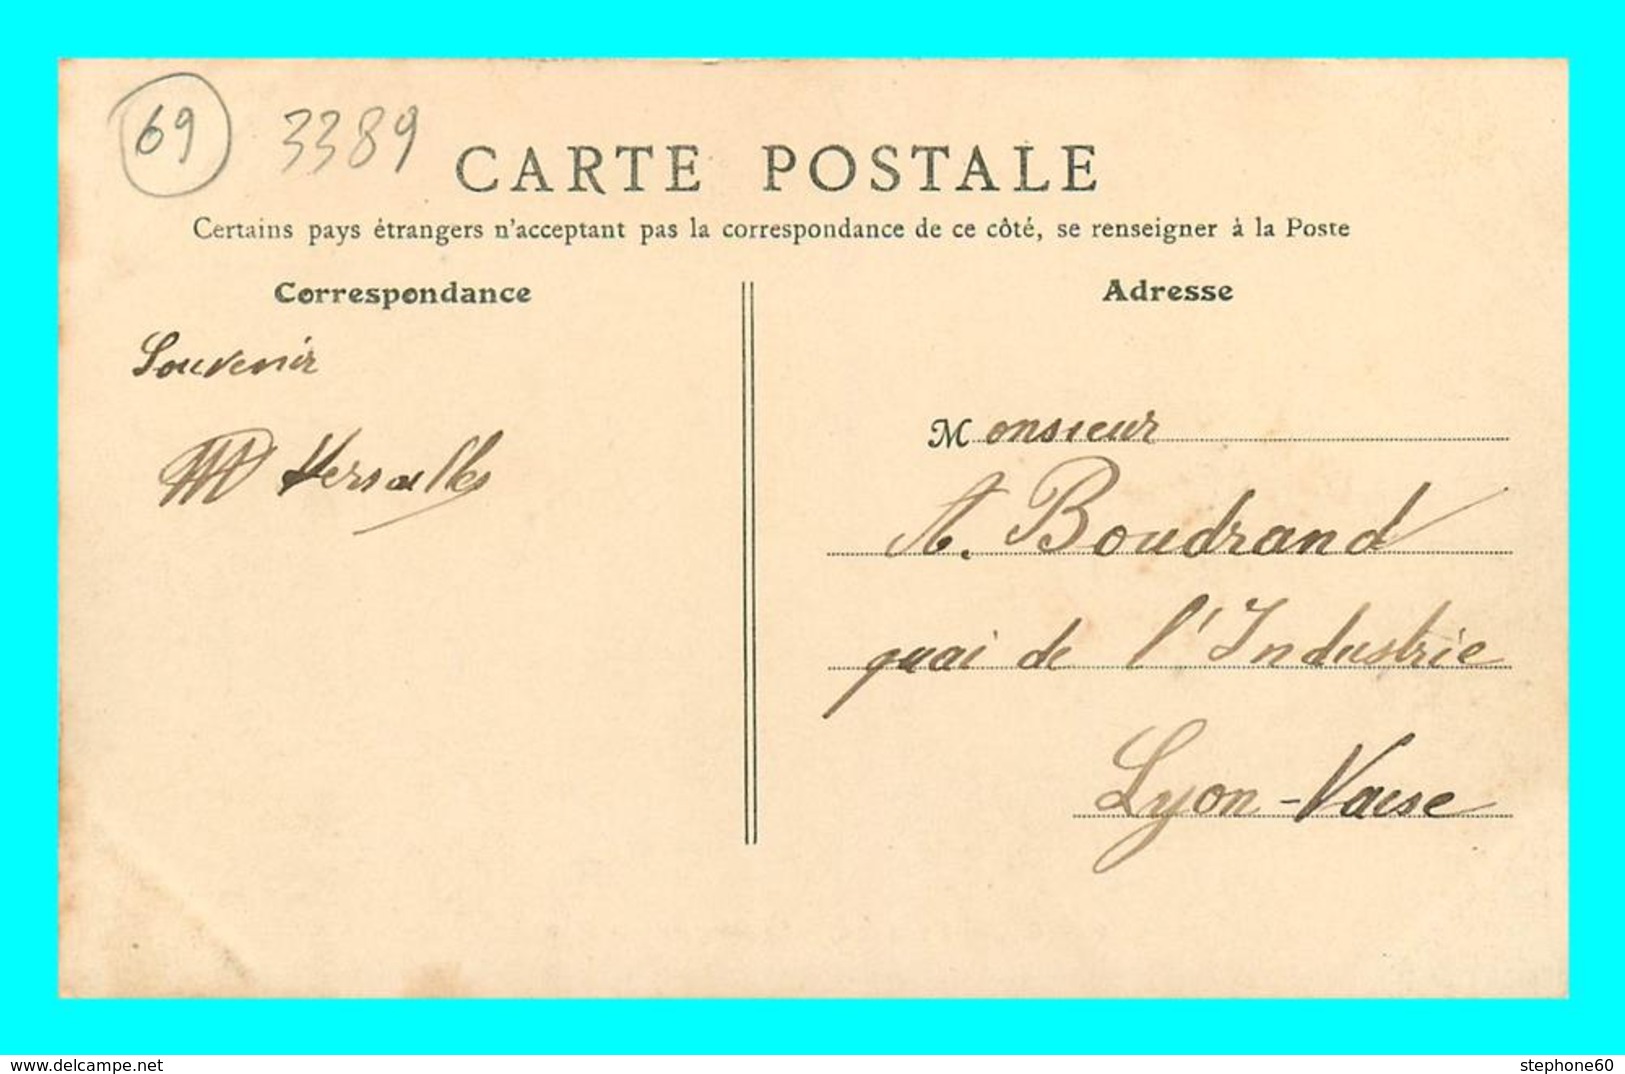 69 3389
CARTE POSTALE
Certains pays étrangers n'acceptant pas la correspondance de ce côté, se renseigner à la Poste
Correspondance
Souvenir
Versailles
Adresse
Monsieur
A. Boudrand
quai de l'Industrie
Lyon-Vaise
delcampe.net
stephone60